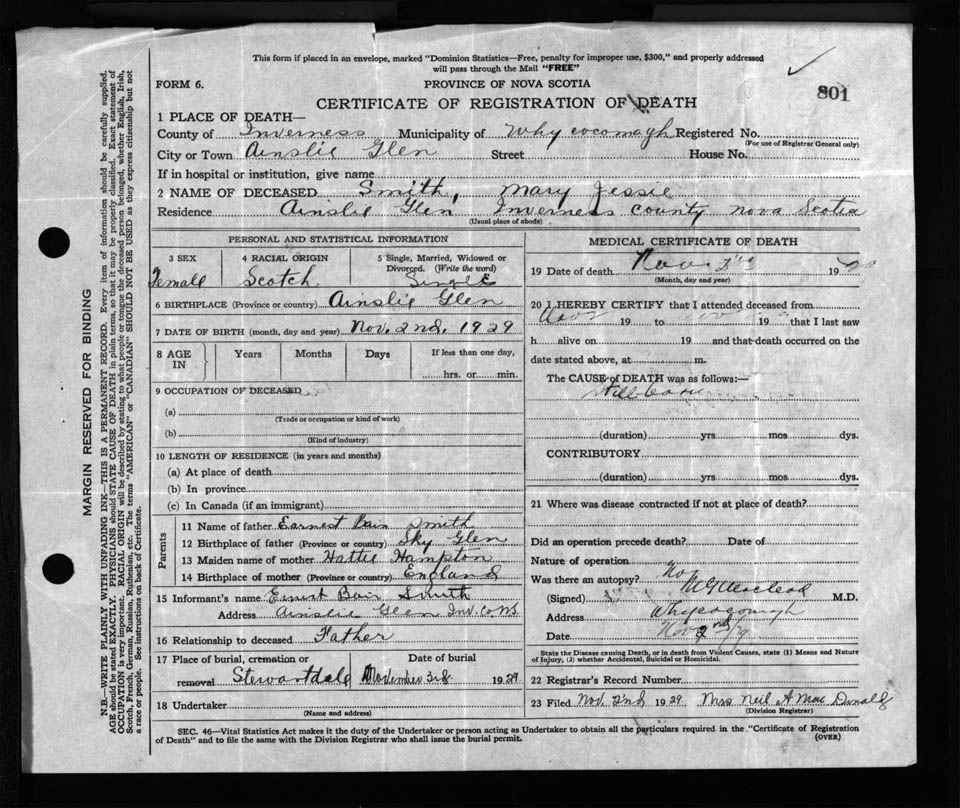 This form if placed in an envelope, marked "Dominion Statistics—Free, penalty for improper use, $300," and properly addressed
will pass through the Mail "FREE"
FORM 6.
PROVINCE OF NOVA SCOTIA
801
CERTIFICATE OF REGISTRATION OF DEATH
1 PLACE OF DEATH—
County of Inverness Municipality of Whycocomagh Registered No.
(For use of Registrar General only)
City or Town Ainslie Glen Street House No.
If in hospital or institution, give name
2 NAME OF DECEASED Smith, Mary Jessie
Residence Ainslie Glen Inverness county Nova Scotia
(Usual place of abode)
PERSONAL AND STATISTICAL INFORMATION
3 SEX 4 RACIAL ORIGIN 5 Single, Married, Widowed or
Divorced. (Write the word)
Female Scotch Single
6 BIRTHPLACE (Province or country) Ainslie Glen
7 DATE OF BIRTH (month, day and year) Nov. 2nd, 1929
8 AGE IN Years Months Days If less than one day,
hrs. or min.
9 OCCUPATION OF DECEASED
(a)
(Trade or occupation or kind of work)
(b)
(Kind of industry)
10 LENGTH OF RESIDENCE (in years and months)
(a) At place of death
(b) In province
(c) In Canada (if an immigrant)
Parents
11 Name of father Earnest Smith
12 Birthplace of father (Province or country) Sky Glen
13 Maiden name of mother Hattie Hampton
14 Birthplace of mother (Province or country) England
15 Informant's name Ernest Smith
Address Ainslie Glen Inv. Co. N.S.
16 Relationship to deceased Father
17 Place of burial, cremation or Date of burial
removal Stewartdale November 3rd 1929
18 Undertaker
(Name and address)
MEDICAL CERTIFICATE OF DEATH
19 Date of death Nov 19
(Month, day and year)
20 I HEREBY CERTIFY that I attended deceased from
Nov 19 to 19 that I last saw
h alive on 19 and that death occurred on the
date stated above, at m.
The CAUSE of DEATH was as follows:—
Stillborn
(duration) yrs mos dys.
CONTRIBUTORY
(duration) yrs mos dys.
21 Where was disease contracted if not at place of death?
Did an operation precede death? Date of
Nature of operation
Was there an autopsy? No
(Signed) M.D.
Address Whycocomagh
Date Nov 2nd
State the Disease causing Death, or in death from Violent Causes, state (1) Means and Nature
of Injury, (2) whether Accidental, Suicidal or Homicidal.
22 Registrar's Record Number
23 Filed Nov. 2nd 1929 Mrs Neil A MacDonald
(Division Registrar)
SEC. 46—Vital Statistics Act makes it the duty of the Undertaker or person acting as Undertaker to obtain all the particulars required in the "Certificate of Registration
of Death" and to file the same with the Division Registrar who shall issue the burial permit.
(OVER)
MARGIN RESERVED FOR BINDING
N.B.—WRITE PLAINLY WITH UNFADING INK—THIS IS A PERMANENT RECORD. Every item of information should be carefully supplied.
AGE should be stated EXACTLY. PHYSICIANS should STATE CAUSE OF DEATH in plain terms, so that it may be properly classified. Exact statement of
OCCUPATION is very important. RACIAL ORIGIN will be described by stating to what people or tongue the deceased person belonged, whether English, Irish,
Scotch, French, German, Russian, Ruthenian, etc. The terms "AMERICAN" or "CANADIAN" SHOULD NOT BE USED as they express citizenship but not
a race or people. See instructions on back of Certificate.